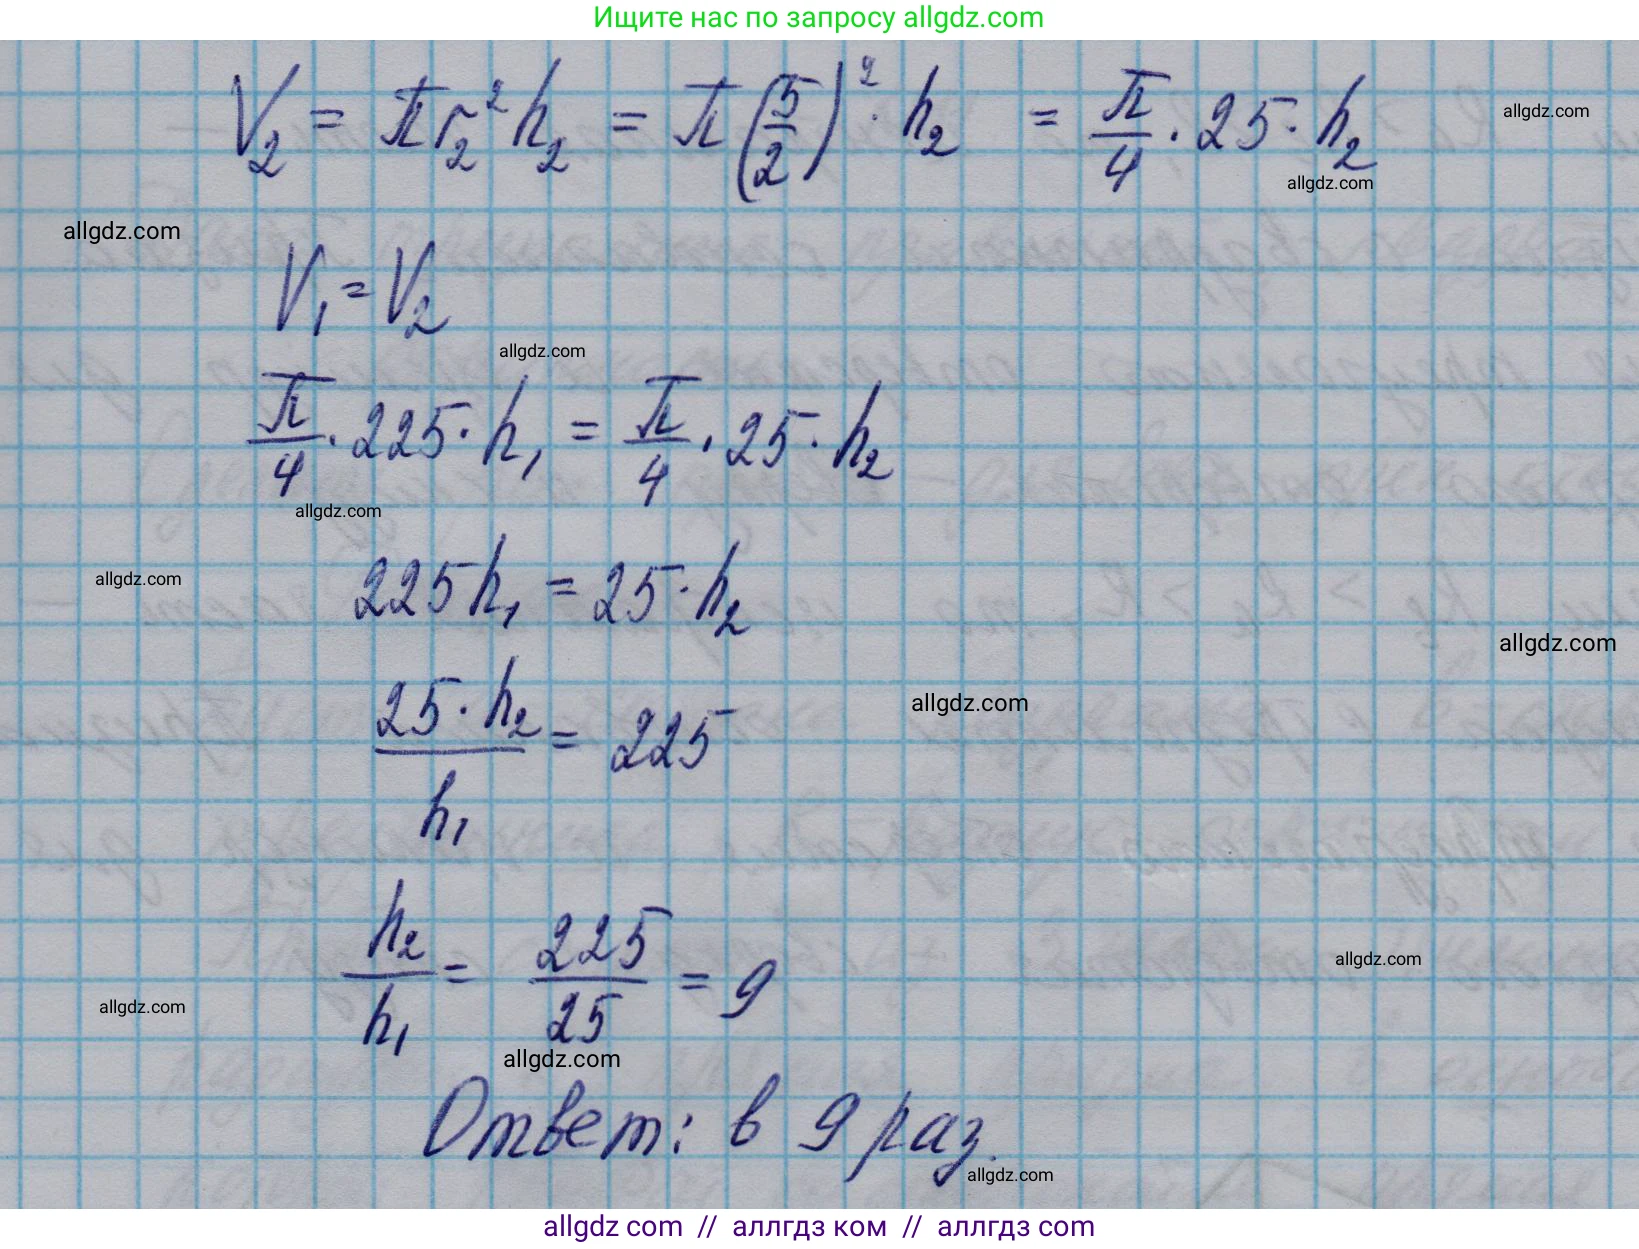 Ищите нас по запросу allgdz.com
V₂ = πr₂²h₂ = π(5/2)² · h₂ = π/4 · 25 · h₂
allgdz.com
allgdz.com
allgdz.com
V₁ = V₂
allgdz.com
π/4 · 225 · h₁ = π/4 · 25 · h₂
allgdz.com
allgdz.com
225h₁ = 25 · h₂
allgdz.com
25 · h₂/h₁ = 225
allgdz.com
h₂/h₁ = 225/25 = 9
allgdz.com
allgdz.com
allgdz.com
Ответ: в 9 раз.
allgdz.com
allgdz com // аллгдз ком // аллгдз com